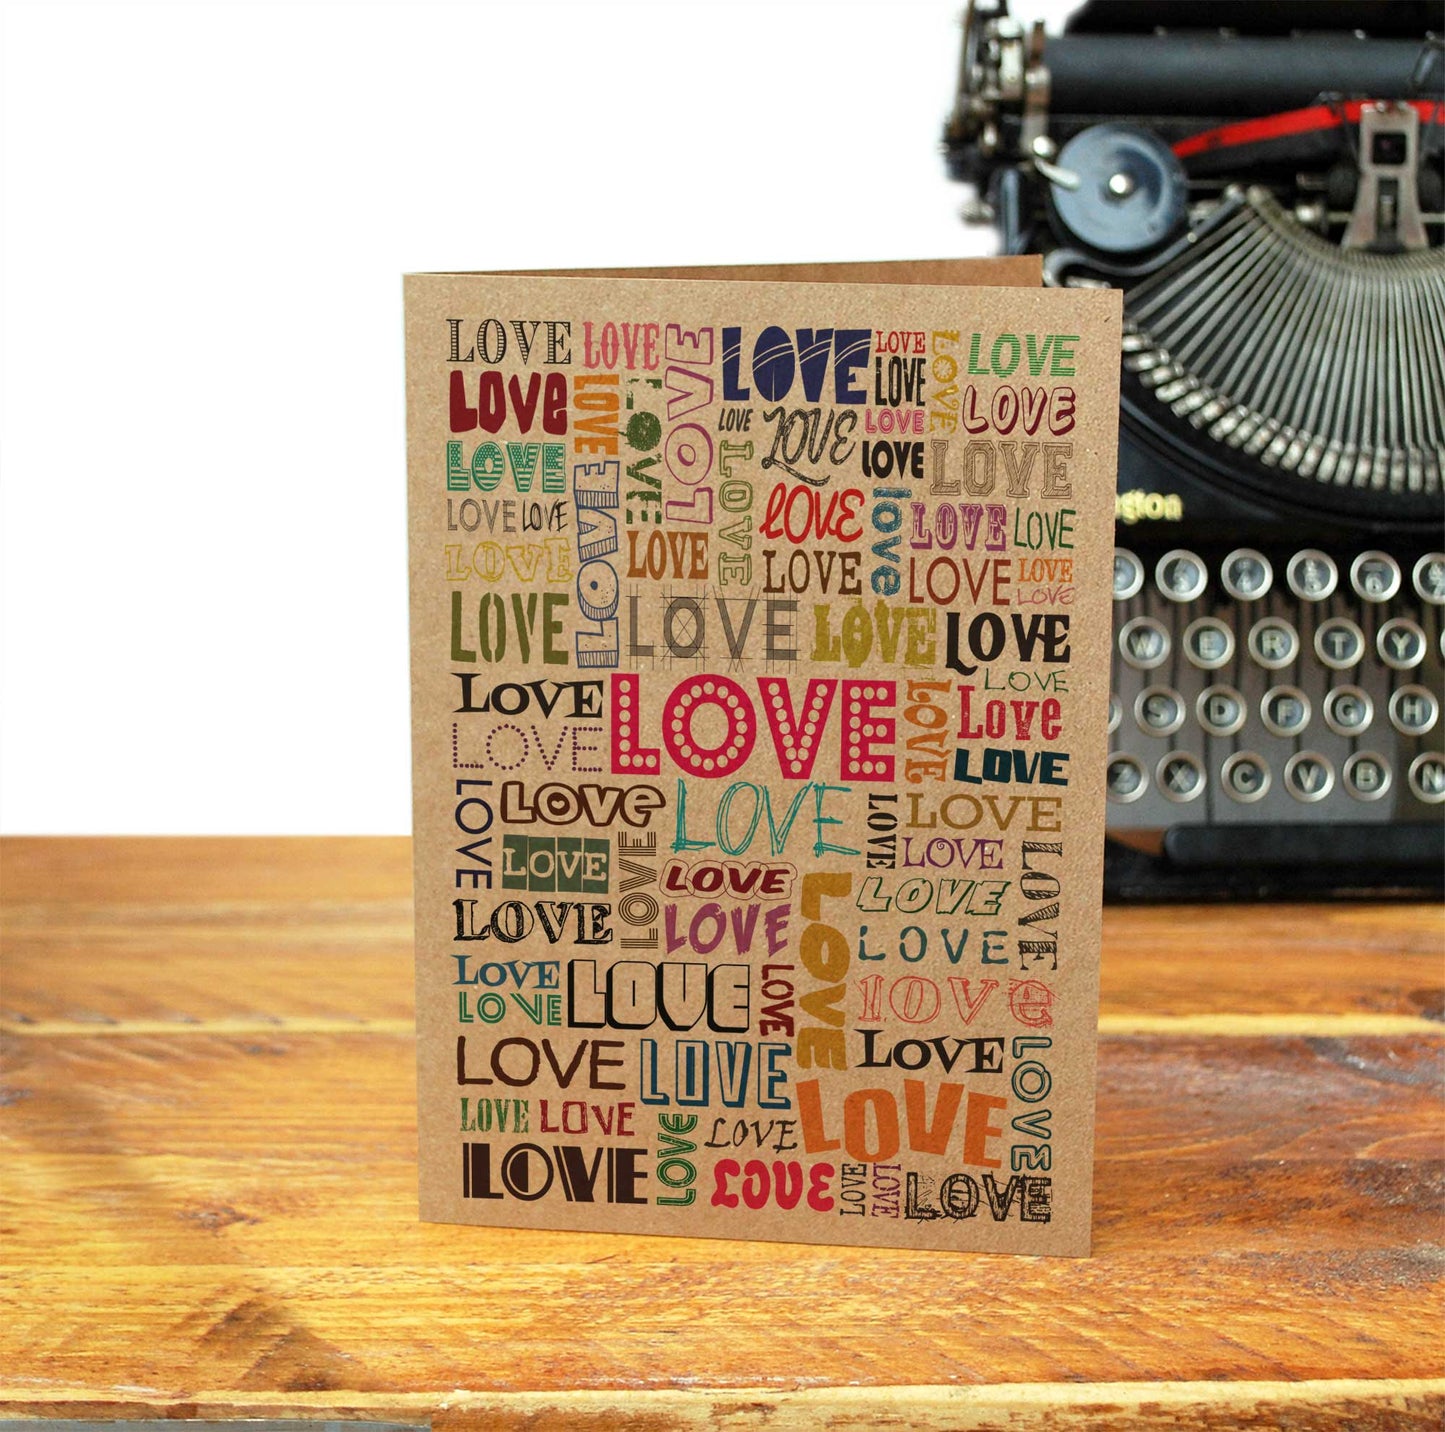 LOVE LOVE LOVE LOVE LOVE LOVE LOVE
LOVe LOVE LOVE LOVE LOVE
LOVE LOVE LOVE
LOVE LOVE LOVE LOVE LOVE
LOVE LOVE LOVE love LOVE LOVE
LOVE LOVE LOVE LOVE LOVE LOVE
LOVE LOVE LOVE LOVE
LOVE LOVE LOVE LOVE
LOVE LOVe
LOVE
LOVE LOVe LOVE LOVE LOVE
LOVE LOVE LOVE LOVE
LOVE LOVE LOVE
LOVE LOVE LOVE
LOVE LOVE LOVE lOVe
LOVE
LOVE LOVE LOVE LOVE
LOVE LOVE LOVE LOVE LOVE
LOVE LOVE LOVE LOVE LOVE
gton
W E R T Y
S D F G H
Z X C V B N